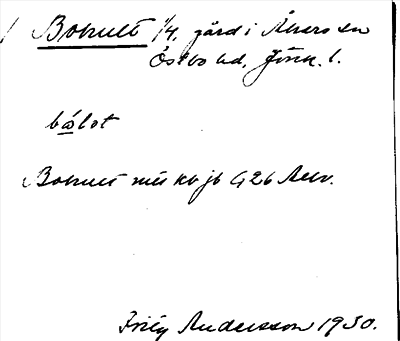 Bohult 1/4, gård i Åkers sn
Östbo hd, Jönk. l.
bålot
Bohult mtl kb jb G26 Aelv.
Andersson 1930.